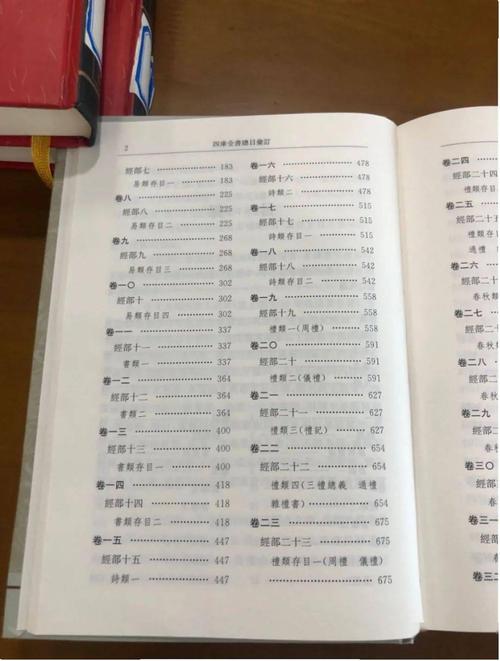 2
四庫全書總目彙訂
經部七 183
易類存目一 183
卷八 225
經部八 225
易類存目二 225
卷九 268
經部九 268
易類存目三 268
卷一〇 302
經部十 302
易類存目四 302
卷一一 337
經部十一 337
書類一 337
卷一二 364
經部十二 364
書類二 364
卷一三 400
經部十三 400
書類存目一 400
卷一四 418
經部十四 418
書類存目二 418
卷一五 447
經部十五 447
詩類一 447
卷一六 478
經部十六 478
詩類二 478
卷一七 515
經部十七 515
詩類存目一 515
卷一八 542
經部十八 542
詩類存目二 542
卷一九 558
經部十九 558
禮類一(周禮) 558
卷二〇 591
經部二十 591
禮類二(儀禮) 591
卷二一 627
經部二十一 627
禮類三(禮記) 627
卷二二 654
經部二十二 654
禮類四(三禮總義 通禮
雜禮書) 654
卷二三 675
經部二十三 675
禮類存目一(周禮 儀禮)
675
卷二四
經部二十四
禮類存目
卷二五
經部二十五
禮類存
通禮
卷二六
經部二十六
春秋
卷二七
經部二十
春秋類
卷二八
經部二十
春秋
卷二九
經部二十
春秋
卷三〇
經部三
春秋
卷三一
經部三
春秋
卷三二